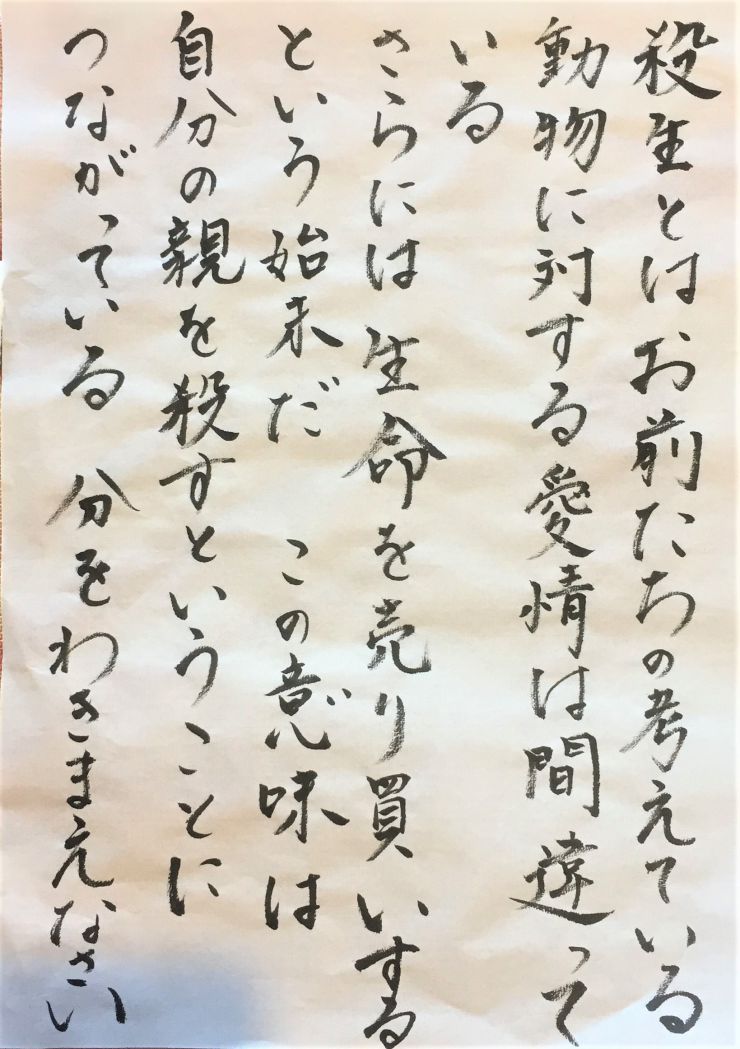 殺生とはお前たちの考えている
動物に対する愛情は間違って
いる
さらには生命を売り買いする
という始末だ この意味は
自分の親を殺すということに
つながっている 分をわきまえなさい